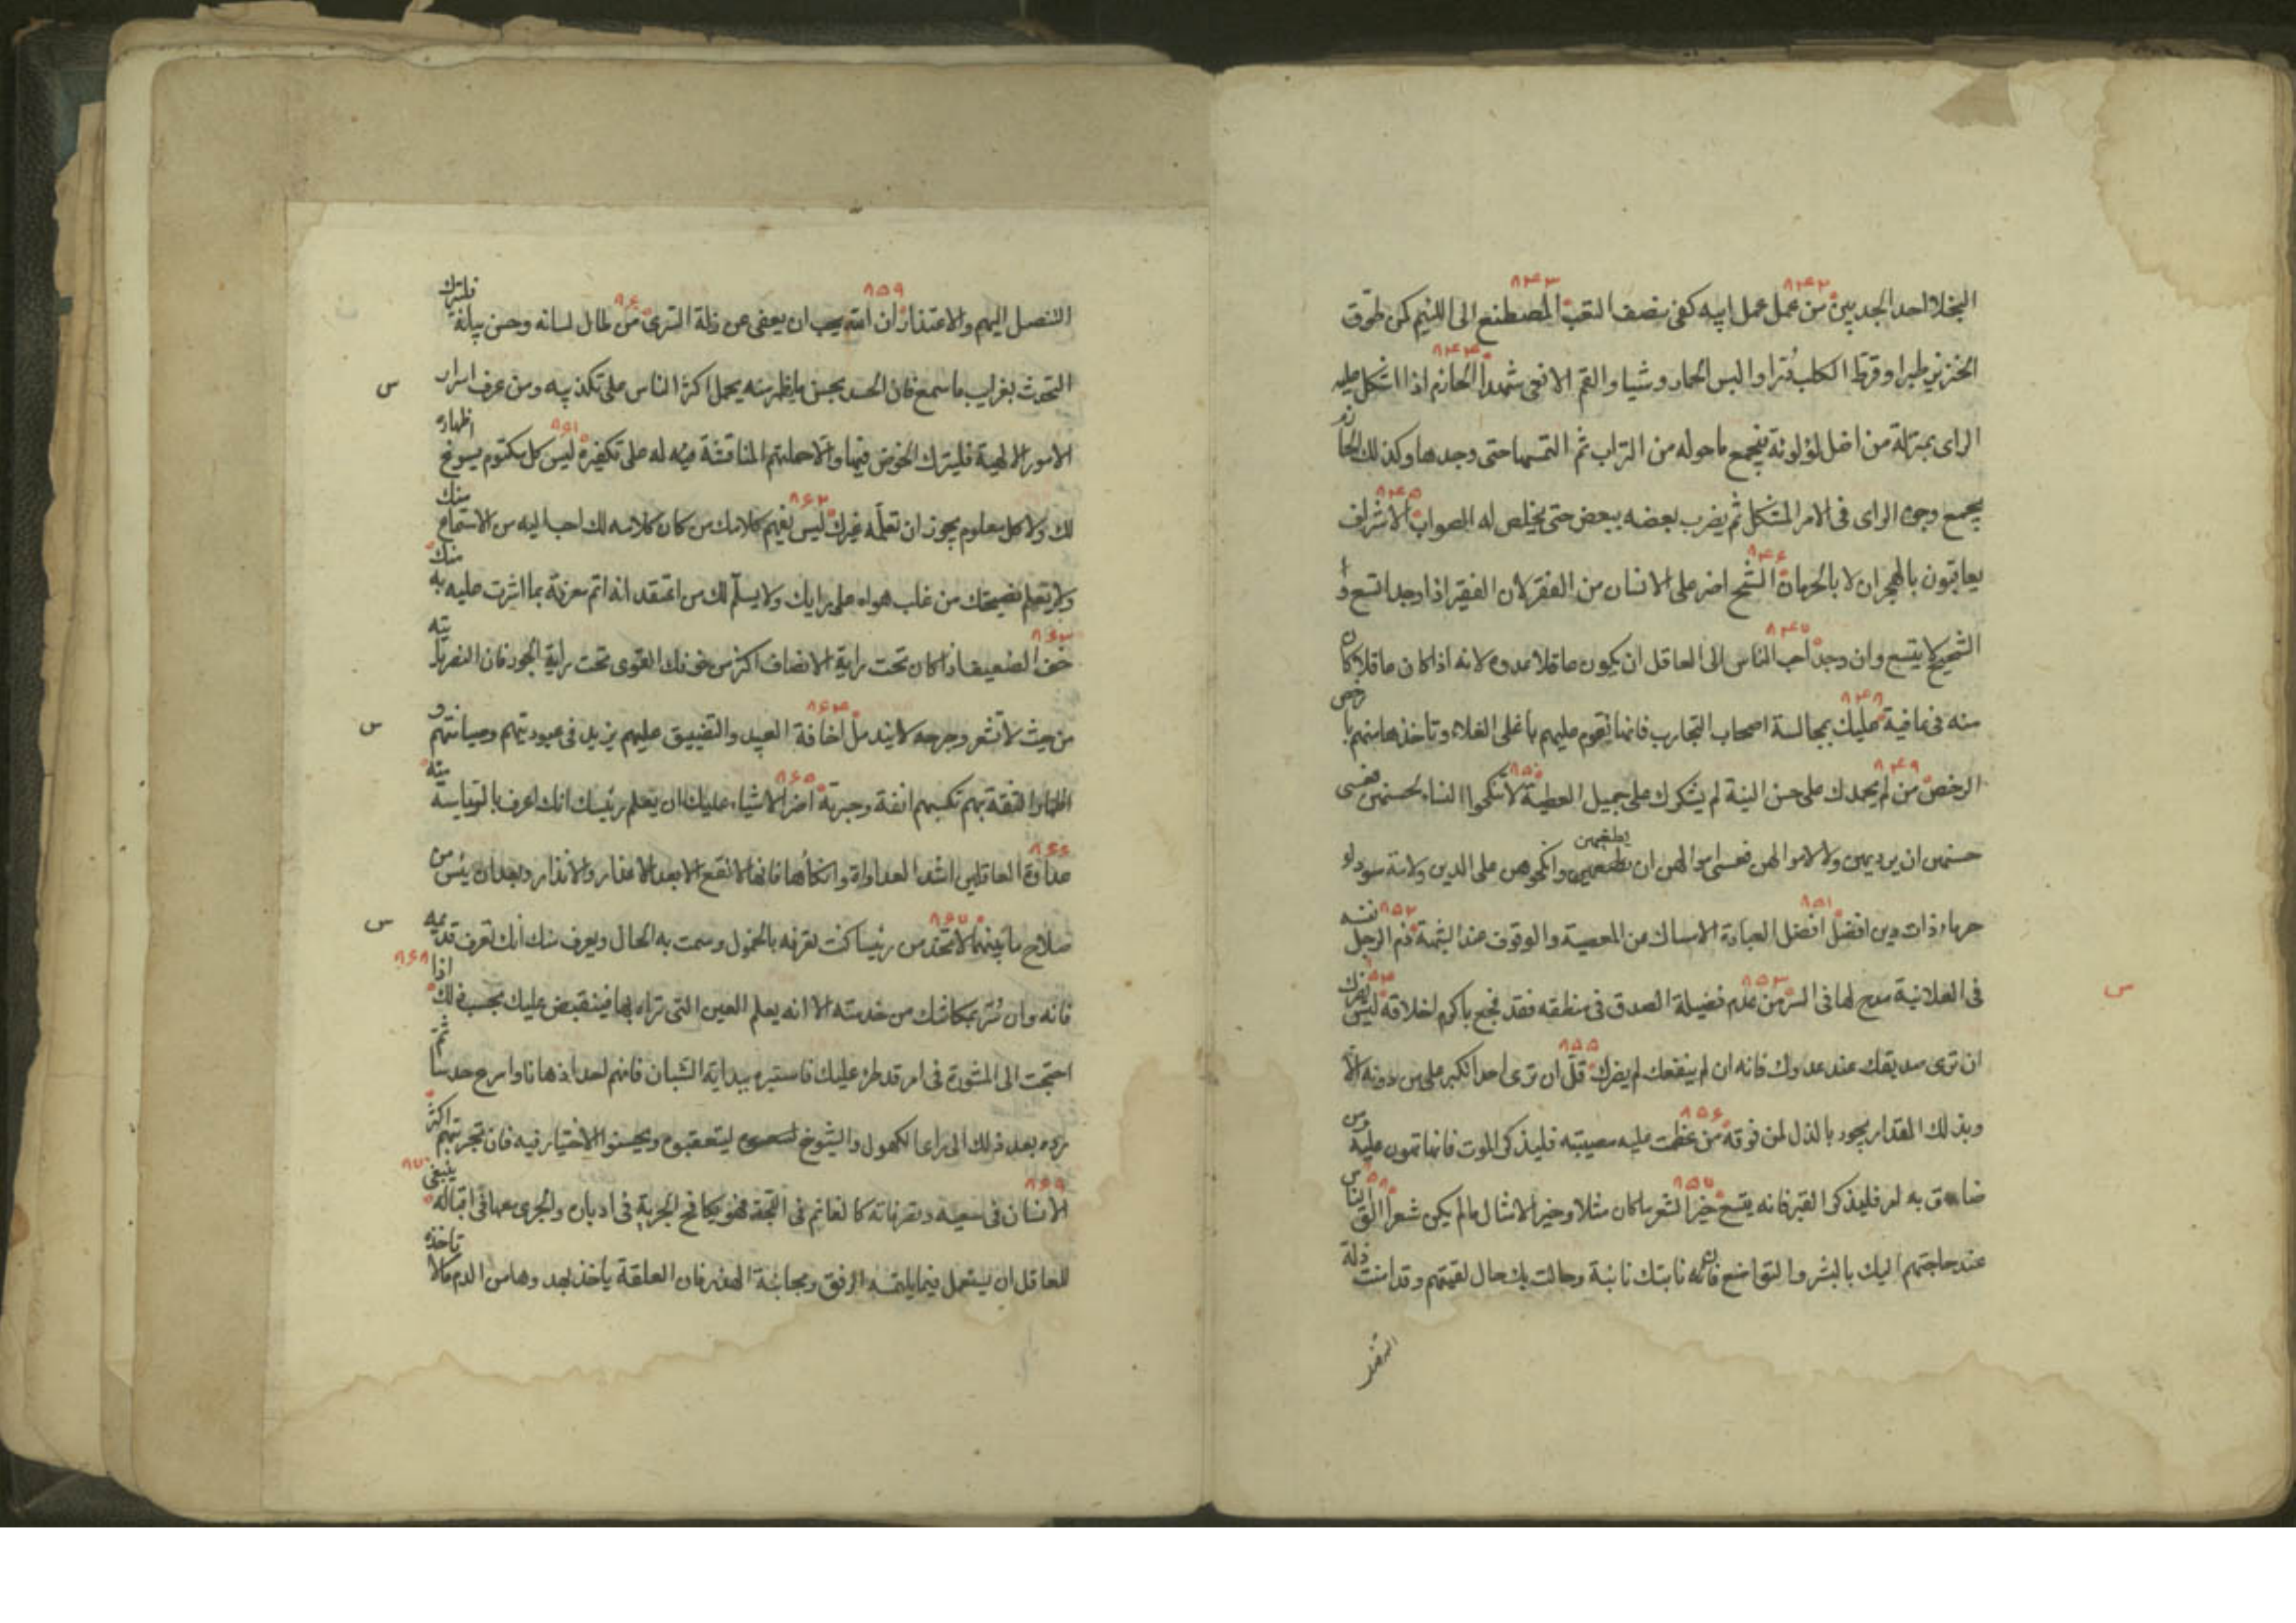 البخلا احد الجدبين من عمل عمل ابيه كفى نصف التعب المصطنع الى اللئيم كمن طوق
٨٤٢ ٨٤٣
الخنزير تبرا وقرط الكلب دُرا والبس الحمار وشيا والقم الافعى شهدا الحازم اذا اشكل عليه
٨٤٤
الراى بمنزلة من اضل لؤلؤة فجمع ما حوله من التراب ثم التمسها حتى وجدها وكذلك الحازم
يجمع وجوه الراى فى الامر المشكل ثم يضرب بعضه ببعض حتى يخلص له الصواب الاشراف
٨٤٥
يعاقبون بالهجران لا بالحرمان الشح اضر على الانسان من الفقر لان الفقير اذا وجد اتسع و
٨٤٦
الشحيح لا يتسع وان وجد احب الناس الى العاقل ان يكون عاقلا عدوه لانه اذا كان عاقلا كان
٨٤٧
منه فى عافية عليك بمجالسة اصحاب التجارب فانها تقوم عليهم باغلى الغلاء وتاخذها منهم بارخص
٨٤٨
الرخص من لم يحمدك على حسن النية لم يشكرك على جميل العطية لا تنكحوا النساء لحسنهن فعسى
٨٤٩ ٨٥٠
حسنهن ان يرديهن ولا لاموالهن فعسى اموالهن ان يطغيهن وانكحوهن على الدين ولامة سوداء
يطغيهن
خرماء ذات دين افضل افضل العبادة الامساك عن المعصية والوقوف عند الشبهة ذم الرجل نفسه
٨٥١ ٨٥٢
فى العلانية مدح لها فى السر من عدم فضيلة الصدق فى منطقه فقد فجع باكرم اخلاقه ليس يضرك
٨٥٣ ٨٥٤
س
ان ترى صديقك عند عدوك فانه ان لم ينفعك لم يضرك قلّ ان ترى احدا تكبر على من دونه الا
٨٥٥
وبذلك المقدار يجود بالذل لمن فوقه من عظمت عليه مصيبته فليذكر الموت فانها تهون عليه ومن
٨٥٦
ضاق به امر فليذكر القبر فانه يتسع خير الشعر ما كان مثلا وخير الامثال ما لم يكن شعرا الق الناس
٨٥٧ ٨٥٨
عند حاجتهم اليك بالبشر والتواضع فان نابتك نائبة وحالت بك حال لقيتهم وقد امنت ذلة
التنصل
التنصل اليهم والاعتذار ان الله يحب ان يعفى عن زلة السرى من طال لسانه وحسن بيانه فليترك
٨٥٩ ٨٦٠
التحدث بغرايب ما سمع فان الحسد بحسن ما يظهر منه يحمل اكثر الناس على تكذيبه ومن عرف اسرار
س
الامور الالهية فليترك الخوض فيها والا حملتهم المنافسة فيه له على تكفيره ليس كل مكتوم يسوغ اظهاره
٨٦١
لك ولا كل معلوم يجوز ان تعلمه غيرك ليس يفهم كلامك من كان كلامه لك احب اليه من الاستماع منك
٨٦٢
ولا يعلم نصيحتك من غلب هواه على رايك ولا يسلم لك من اعتقد انه اتم معرفة بما اشرت عليه به منك
خف الضعيف اذا كان تحت راية الانصاف اكثر من خوفك القوى تحت راية الجور فان النصر ياتيه
٨٦٣
من حيث لا تشعر وجرحه لا يندمل اخافة العبيد والتضييق عليهم يزيد فى عبوديتهم وصيانتهم و
٨٦٤
س
اظهار الثقة بهم تكسبهم انفة وجبرية اضر الاشياء عليك ان يعلم رئيسك انك اعرف بالرياسة منه
٨٦٥
عداوة العاقلين اشد العداوات وانكاها فانها لا تقع الا بعد الاعذار والانذار وبعد ان يئس من
٨٦٦
صلاح ما بينهما لا تخدمن رئيسا كنت تعرفه بالخمول وسمت به الحال ويعرف منك انك تعرف قديمه
٨٦٧
س
فانه وان سُرّ بمكانك من خدمته الا انه يعلم العين التى تراه بها فينقبض عليك بحسب ذلك اذا
٨٦٨
احتجت الى المشورة فى امر قد طرا عليك فاستبره ببداية الشبان فانهم احد اذهانا واسرع حدسا ثم
رده بعد ذلك الى راى الكهول والشيوخ ليتعقبوه ويحسنوا الاختيار فيه فان تجربتهم اكثر
الانسان فى سعيه وتصرفاته كالعائم فى اللجة فهو يكافح الجرية فى ادباره ويجرى معها فى اقباله ينبغى
٨٦٩ ٨٧٠
للعاقل ان يستعمل فيما يلتمسه الرفق ومجانبة الهذر فان العلقة تاخذ بهدوها من الدم ما لا تاخذه